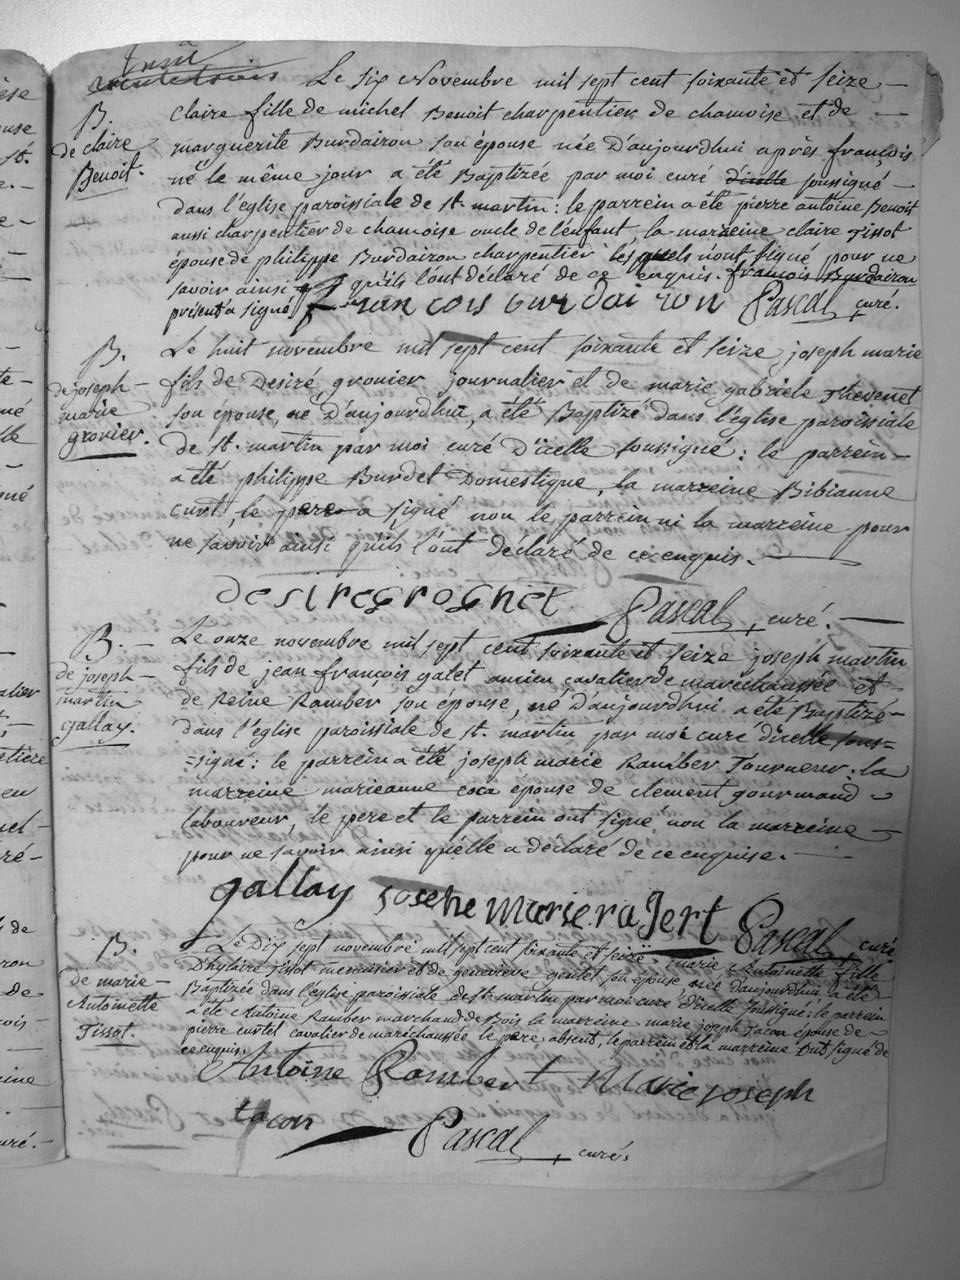 Le six Novembre mil sept cent soixante et seize —
B. Claire fille de michel Benoit charpentier de chamoise et de —
de claire marguerite Burdairon son épouse née D'aujourdhui après françois
Benoit. né le même jour a été Baptizée par moi curé d'icelle soussigné —
dans l'église paroissiale de st. martin : le parrein a été pierre antoine Benoit
aussi charpentier de chamoise oncle de l'enfant, la marreine claire Tissot
épouse de philippe Burdairon charpentier lesquels n'ont signé pour ne
savoir ainsi qu'ils l'ont déclaré de ce enquis. françois Burdairon
présent a signé
francois burdairon Pascal, curé.
B. Le huit novembre mil sept cent soixante et seize joseph marie
de joseph — fils de Desiré gronier journalier et de marie gabriele Thevenet
marie son épouse, né D'aujourdhui, a été Baptizé dans l'église paroissiale
gronier. de st. martin par moi curé D'icelle soussigné : le parrein —
a été philippe Burdet Domestique, la marreine Bibianne
curt, le pere a signé non le parrein ni la marreine pour
ne savoir ainsi qu'ils l'ont déclaré de ce enquis. —
desiregrognet Pascal, curé. —
B. — Le onze novembre mil sept cent soixante et seize joseph martin
de joseph — fils de jean françois galet ancien cavalier de marechaussée et
martin de Reine Ramber son épouse, né D'aujourdhui a été Baptizé —
gallay. dans l'église paroissiale de st. martin par moi curé dicelle sous=
=signé : le parrein a été joseph marie Ramber Tourneur : la
marreine marieanne coca épouse de clement gourmand
laboureur le pere et le parrein ont signé non la marreine —
pour ne savoir ainsi qu'elle a déclaré de ce enquise. —
gallay Pascal curé
B. Le Dix sept novembre mil sept cent soixante et seize marie Antoinette fille
de marie — D'hylaire tissot menuisier et de genevieve gentet son épouse née d'aujourdhui, a été
Antoinette Baptizée dans l'église paroissiale de st. martin par moi curé d'icelle soussigné : le parrein
Tissot. a été Antoine Ramber marchand de Bois la marreine marie joseph Tacon épouse de
pierre curtet cavalier de maréchaussée le pere absent, le parrein et la marreine ont signé de
ce enquis.
Antoine Rambert Marie joseph
tacon Pascal, curé.